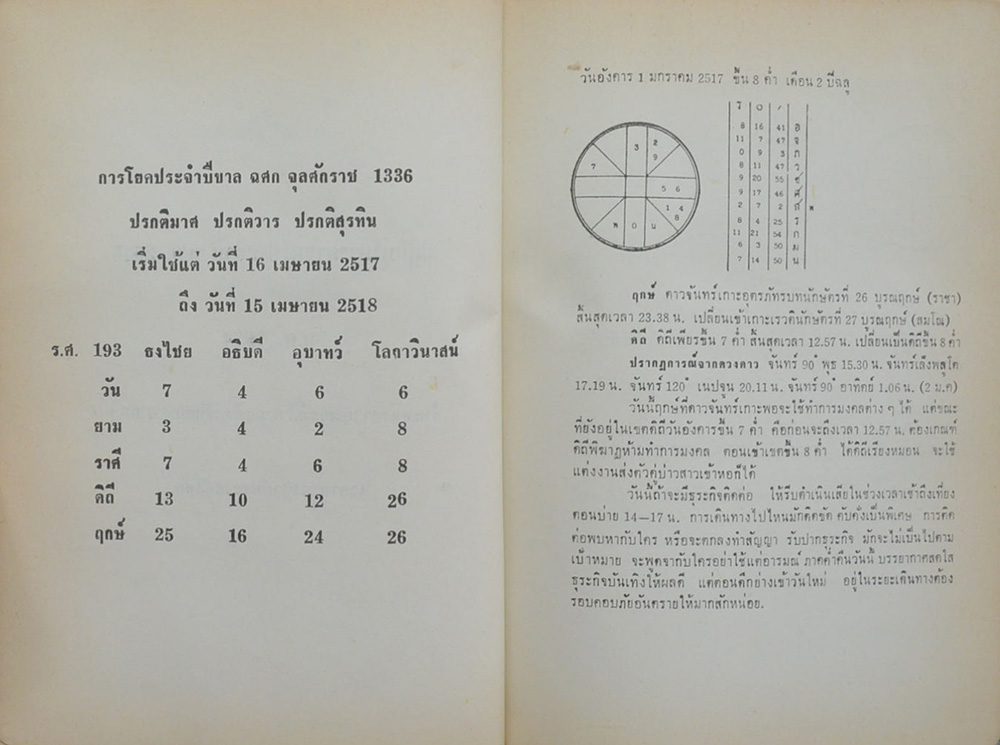 การโยคประจำปีขาล ฉศก จุลศักราช 1336
ปรกติมาศ ปรกติวาร ปรกติสุรทิน
เริ่มใช้แต่ วันที่ 16 เมษายน 2517
ถึง วันที่ 15 เมษายน 2518
ร.ศ. 193 ธงไชย อธิบดี อุบาทว์ โลกาวินาสน์
วัน 7 4 6 6
ยาม 3 4 2 8
ราศี 7 4 6 8
ดิถี 13 10 12 26
ฤกษ์ 25 16 24 26
วันอังคาร 1 มกราคม 2517 ขึ้น 8 ค่ำ เดือน 2 ปีฉลู
3 2
9
7
5 6
1 4
8
พ 0 น
ร 0 /
8 16 41 อ
11 7 47 จ
0 9 3 ภ
8 11 47 ว
9 20 55 ช
9 17 46 ศ
2 7 2 ส พ
8 4 25 ร
11 21 54 ก
6 3 50 ม
7 14 50 น
ฤกษ์ ดาวจันทร์เกาะอุตรภัทรบทนักษัตรที่ 26 บุรณฤกษ์ (ราชา)
สิ้นสุดเวลา 23.38 น. เปลี่ยนเข้าเกาะเรวดีนักษัตรที่ 27 บุรณฤกษ์ (สมโณ)
ดิถี ดิถีเพียรขึ้น 7 ค่ำ สิ้นสุดเวลา 12.57 น. เปลี่ยนเป็นดิถีขึ้น 8 ค่ำ
ปรากฏการณ์จากดวงดาว จันทร์ 90° พุธ 15.30 น. จันทร์เล็งพลูโต
17.19 น. จันทร์ 120° เนปจูน 20.11 น. จันทร์ 90° อาทิตย์ 1.06 น. (2 ม.ค)
วันนี้ฤกษ์ที่ดาวจันทร์เกาะพอจะใช้ทำการมงคลต่าง ๆ ได้ แต่ขณะ
ที่ยังอยู่ในเขตดิถีวันอังคารขึ้น 7 ค่ำ คือก่อนจะถึงเวลา 12.57 น. ต้องเกณฑ์
ดิถีพิฆาฏห้ามทำการมงคล ตอนเข้าเขตขึ้น 8 ค่ำ ได้ดิถีเรียงหมอน จะใช้
แต่งงานส่งตัวคู่บ่าวสาวเข้าหอก็ได้
วันนี้ถ้าจะมีธุระกิจติดต่อ ให้รีบดำเนินเสียในช่วงเวลาเช้าถึงเที่ยง
ตอนบ่าย 14–17 น. การเดินทางไปไหนมักติดขัด คับคั่งเป็นพิเศษ การติด
ต่อพบหากับใคร หรือจะตกลงทำสัญญา รับปากธุระกิจ มักจะไม่เป็นไปตาม
เป้าหมาย จะพูดจากับใครอย่าใช้แต่อารมณ์ ภาคค่ำคืนวันนี้ บรรยากาศสดใส
ธุระกิจบันเทิงให้ผลดี แต่ตอนดึกย่างเข้าวันใหม่ อยู่ในระยะเดินทางต้อง
รอบคอบภัยอันตรายให้มากสักหน่อย.